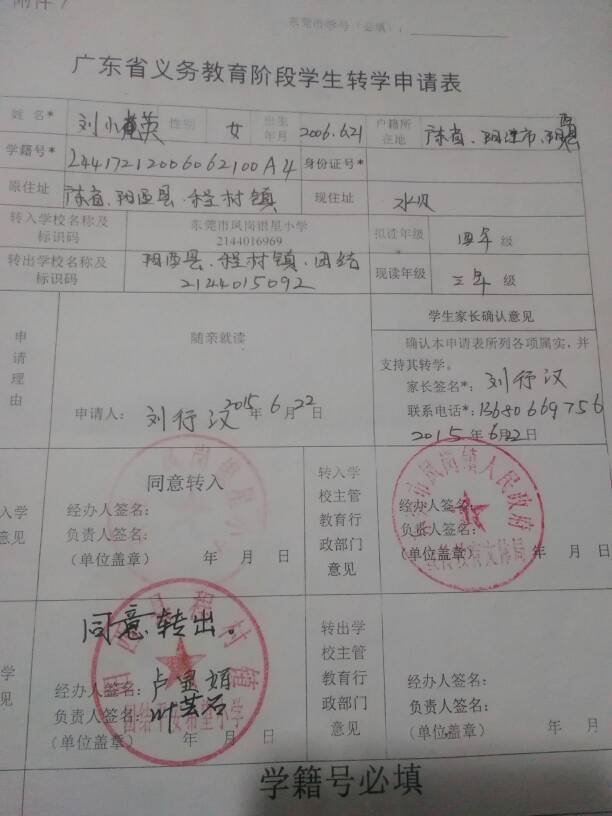 附件7
东莞市学号（必填）：
广东省义务教育阶段学生转学申请表
姓名* 刘小 英 性别 女 出生年月 2006.6.21 户籍所在地
学籍号* L4417212006062100A4 身份证号*
原住址 广东省、阳西县、程村镇 现住址
转入学校名称及标识码 东莞市凤岗镇星小学 2144016969 拟读年级 四年 级
转出学校名称及标识码 阳西县、程村镇、团结 2144015092 现读年级 三年 级
申请理由
随亲就读
申请人： 刘行汉 2015年6月22日
学生家长确认意见
确认本申请表所列各项属实，并
支持其转学。
家长签名*： 刘行汉
联系电话*：13680669756
2015年6月22日
入学
意见
同意转入
经办人签名：
负责人签名：
（单位盖章） 年 月 日
转入学
校主管
教育行
政部门
意见
市凤岗镇人民政府
宣传教育文体局
经办人签名：
负责人签名：
（单位盖章） 年 月 日
学
见
同意转出。
程村镇
团结平安希望小学
经办人签名：
负责人签名：
（单位盖章） 年 月 日
转出学
校主管
教育行
政部门
意见
经办人签名：
负责人签名：
（单位盖章） 年 月 日
学籍号必填